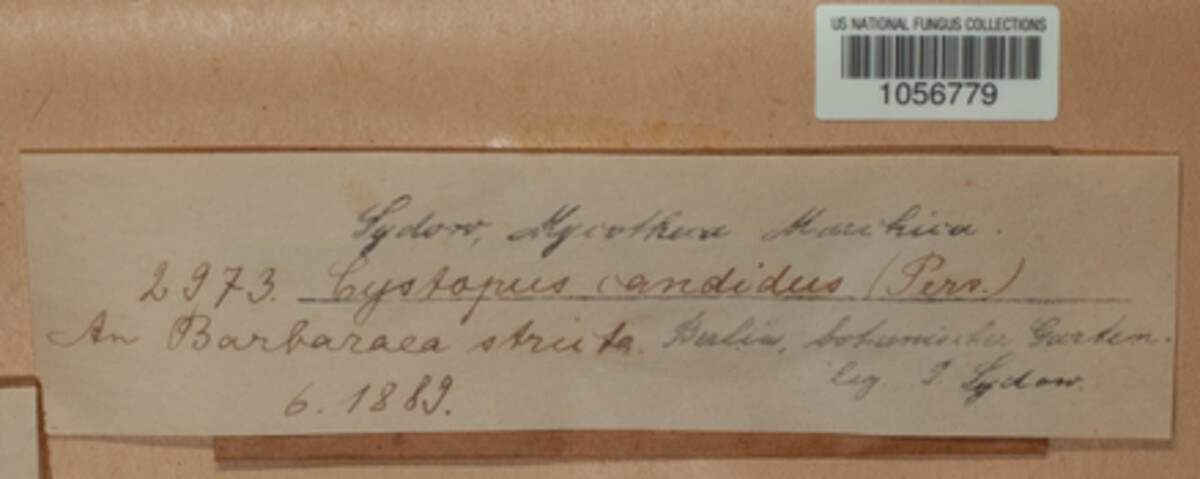 US NATIONAL FUNGUS COLLECTIONS
1056779
Sydow, Mycotheca Marchica.
2973. Cystopus candidus (Pers.)
An Barbaraea stricta. Berlin, botanischer Garten.
leg. P. Sydow.
6. 1889.